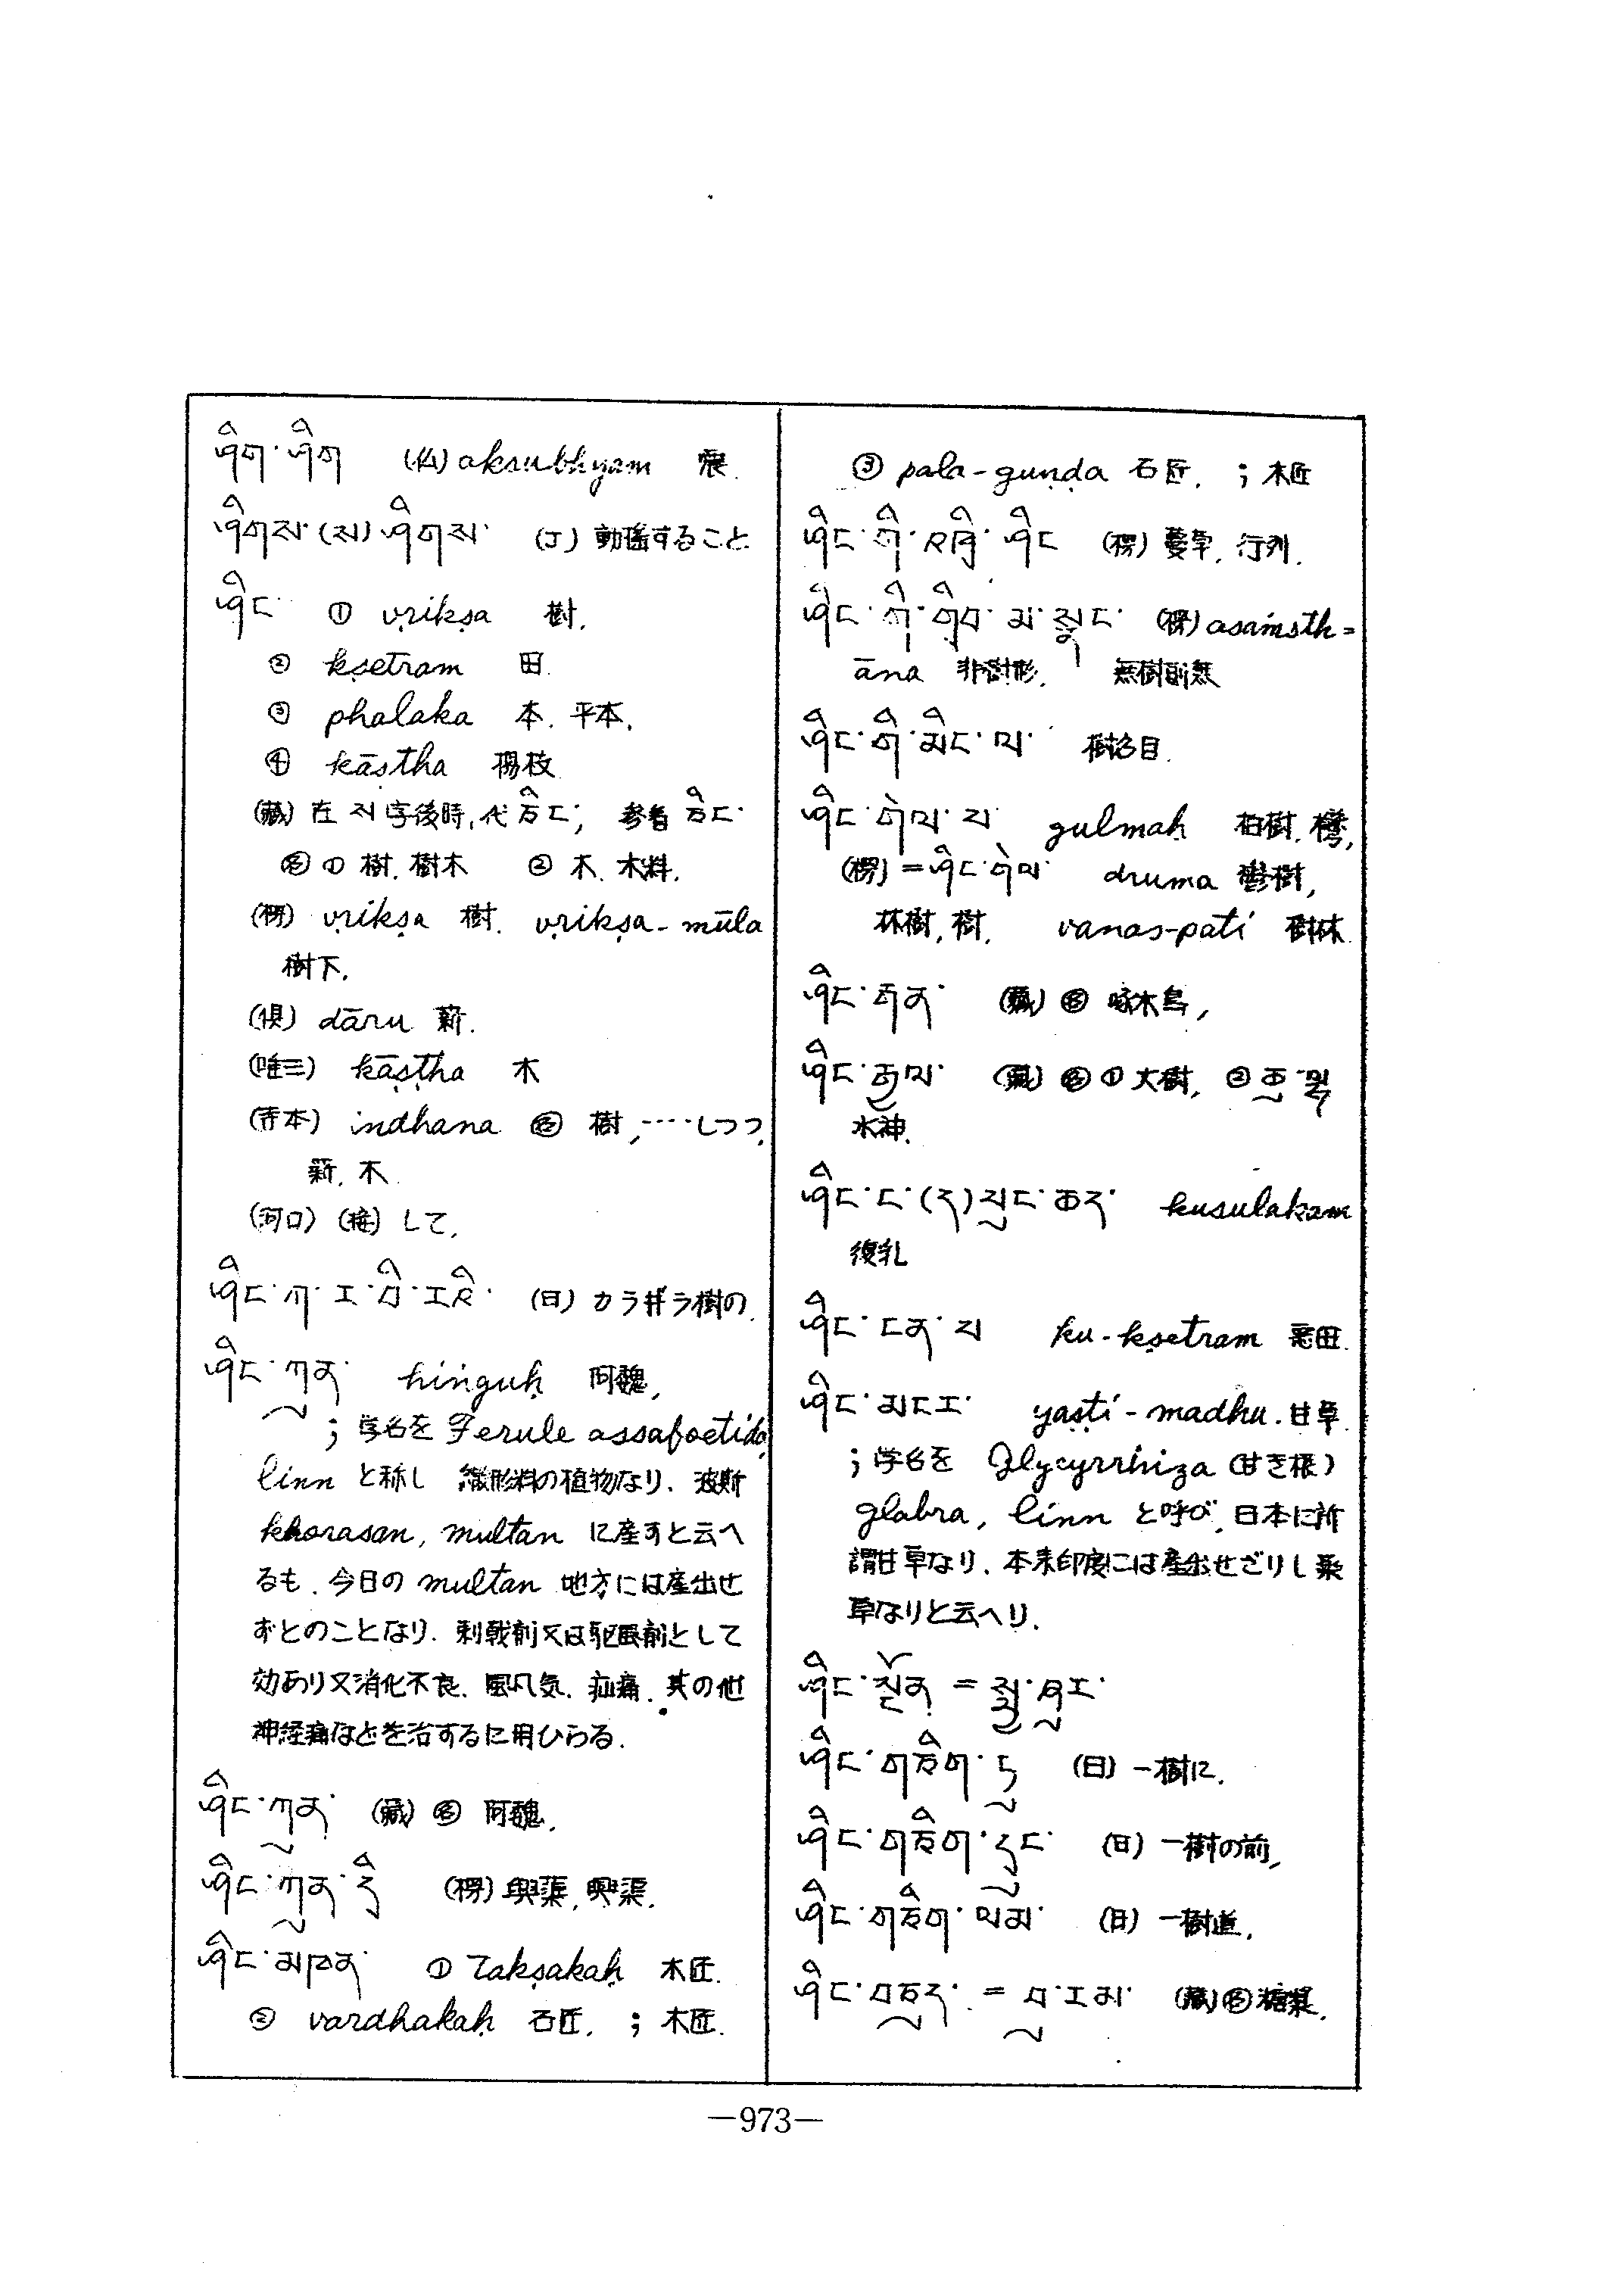 ཤིག་ཤིག (仏) aksubhyam 震.
ཤིགས་(ས)ཤིགས་ (J) 動揺すること
ཤིང་ ① vṛikṣa 樹.
② kṣetram 田.
③ phalaka 本. 平本.
④ kāṣtha 楊枝
(藏) 在 ས字後時, 代ཞིང; 参看 ཞིང་
㊔ ① 樹. 樹木 ② 木. 木料.
(楞) vṛikṣa 樹. vṛikṣa-mūla
樹下.
(倶) dāru 薪.
(唯三) kāṣṭha 木
(寺本) indhana ㊔ 樹, ‥‥しつつ,
薪. 木.
(河口) (接) して.
ཤིང་ཀ་ར་བི་རའི་ (日) カラギラ樹の.
ཤིང་ཀུན་ hinguḥ 阿魏,
; 学名を Ferule assafoetida,
linn と称し 繖形科の植物なり. 波斯
khorasan, multan に産すと云へ
るも. 今日の multan 地方には産出せ
ずとのことなり. 刺戟剤又は駆風剤として
効あり又消化不良. 風气. 疝痛. 其の他
神経痛などを治するに用ひらる.
ཤིང་ཀུན་ (藏) ㊔ 阿魏.
ཤིང་ཀུན་དེ (楞) 興渠, 興渠.
ཤིང་མཁན་ ① Takṣakaḥ 木匠.
② vardhakaḥ 石匠. ; 木匠.
③ pala-guṇḍa 石匠. ; 木匠
ཤིང་གི་འཁྲི་ཤིང (楞) 蔓草, 行列.
ཤིང་གི་ མ་ (楞) asaṁsth=
āna 非樹形.
ཤིང་གི་མིང་ལ་ 樹名目.
ཤིང་གེལ་པ gulmaḥ 柏樹. 欝,
(楞) = ཤིང་གེལ་ druma 欝樹,
林樹, 樹. vanas-pati 樹林.
ཤིང་ (藏) ㊔ 啄木鳥,
ཤིང་རྒྱལ་ (藏) ㊔ ① 大樹, ②
水神.
ཤིང་ང་(ད)སྤུང་ཆད་ kusulakam
復乳
ཤིང་ངན་པ ku-kṣetram 悪田.
ཤིང་མངར་ yaṣṭi-madhu. 甘草.
; 学名を Glycyrrhiza (甘き根)
glabra, linn と呼び, 日本に所
謂甘草なり. 本来印度には産出せざりし薬
草なりと云へり.
ཤིང་སྔོན་ =
ཤིང་གཅིག་ཏུ (日) 一樹に.
ཤིང་གཅིག་དྲུང་ (日) 一樹の前,
ཤིང་གཅིག་ལམ་ (日) 一樹道.
ཤིང་བཅུད་ = བུ་རམ་ (藏) ㊔ 糖蜜.
—973—